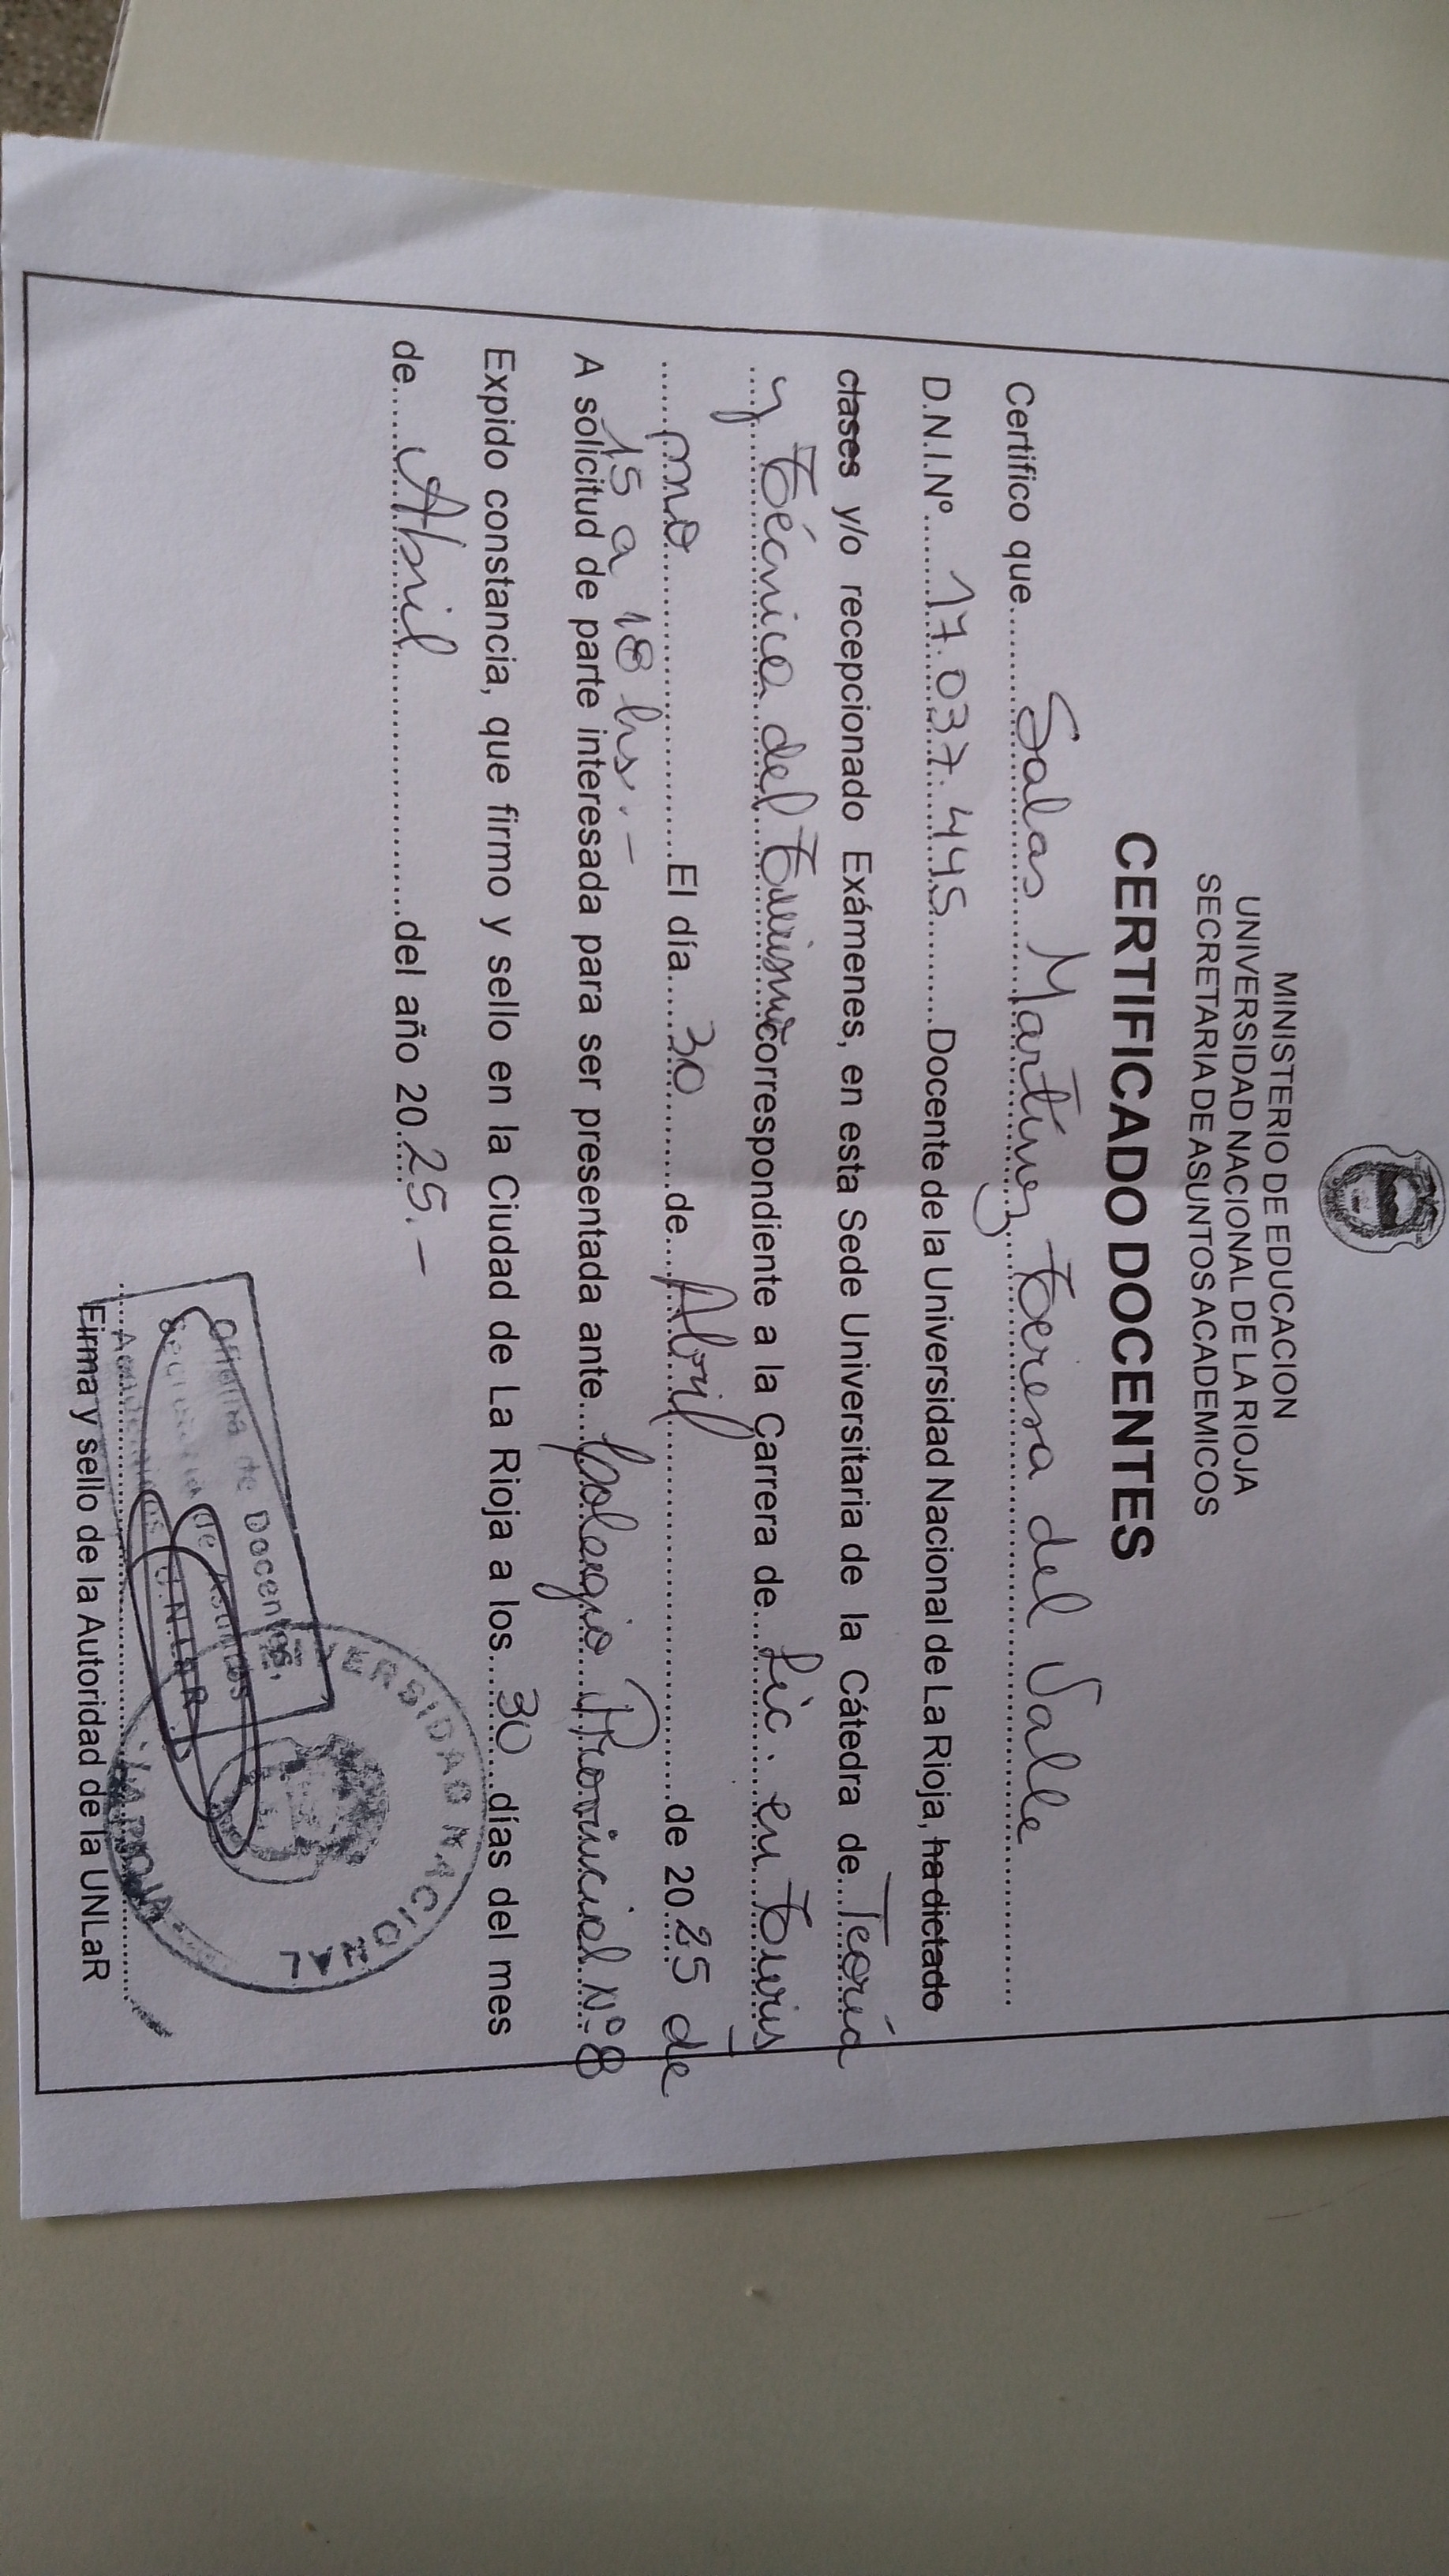 MINISTERIO DE EDUCACION
UNIVERSIDAD NACIONAL DE LA RIOJA
SECRETARIA DE ASUNTOS ACADEMICOS
CERTIFICADO DOCENTES
Certifico que Salas Martínez Teresa del Valle
D.N.I.Nº 17.037.445 Docente de la Universidad Nacional de La Rioja, ha dictado
clases y/o recepcionado Exámenes, en esta Sede Universitaria de la Cátedra de Teoría
y Técnica del Turismo correspondiente a la Carrera de Lic. en Turis
mo El día 30 de Abril de 2025 de
15 a 18 hs.-
A solicitud de parte interesada para ser presentada ante Colegio Provincial Nº 8
Expido constancia, que firmo y sello en la Ciudad de La Rioja a los 30 días del mes
de Abril del año 2025.-
Oficina de Docentes,
Secretaria de Asuntos
Académicos U.N.L.R.
UNIVERSIDAD NACIONAL
LA RIOJA
Firma y sello de la Autoridad de la UNLaR